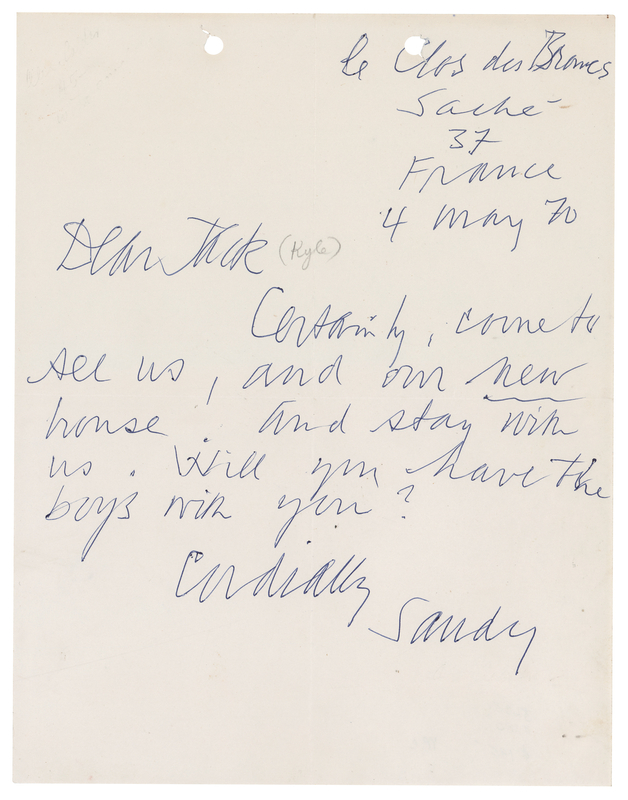 le Clos des Brames
Saché
37
France
4 May 70
Dear Jack (Kyle)
Certainly, come to
see us, and our new
house. And stay with
us. Will you have the
boys with you?
Cordially
Sandy